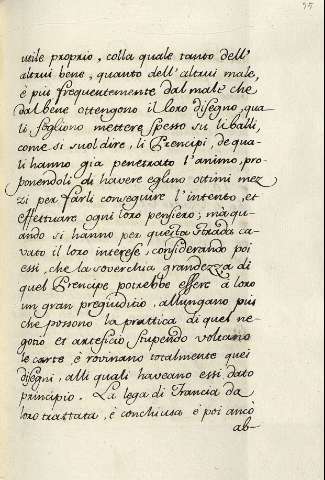 95
utile proprio, colla quale tanto dell'
altrui bene, quanto dell'altrui male,
è più frequentemente dal male che
dal bene ottengono il loro disegno, qua-
li sogliono mettere spesso su li balli,
come si suol dire, li Prencipi, de qua-
li hanno gia penetrato l'animo, pro-
ponendoli di havere eglino ottimi mez
zi per farli conseguire l'intento, et
effettuare ogni loro pensiero; mà qu-
ando si hanno per questa strada ca-
vato il loro interesse, considerando poi
essi, che la soverchia grandezza di
quel Prencipe potrebbe essere à loro
un gran pregiuditio, allungano più
che possono la prattica di quel ne-
gotio et arteficio stupendo voltano
le carte è rovinano totalmente quei
disegni, alli quali haveano essi dato
principio. La lega di Francia da
loro trattata, è conchiusa è poi anco
ab-